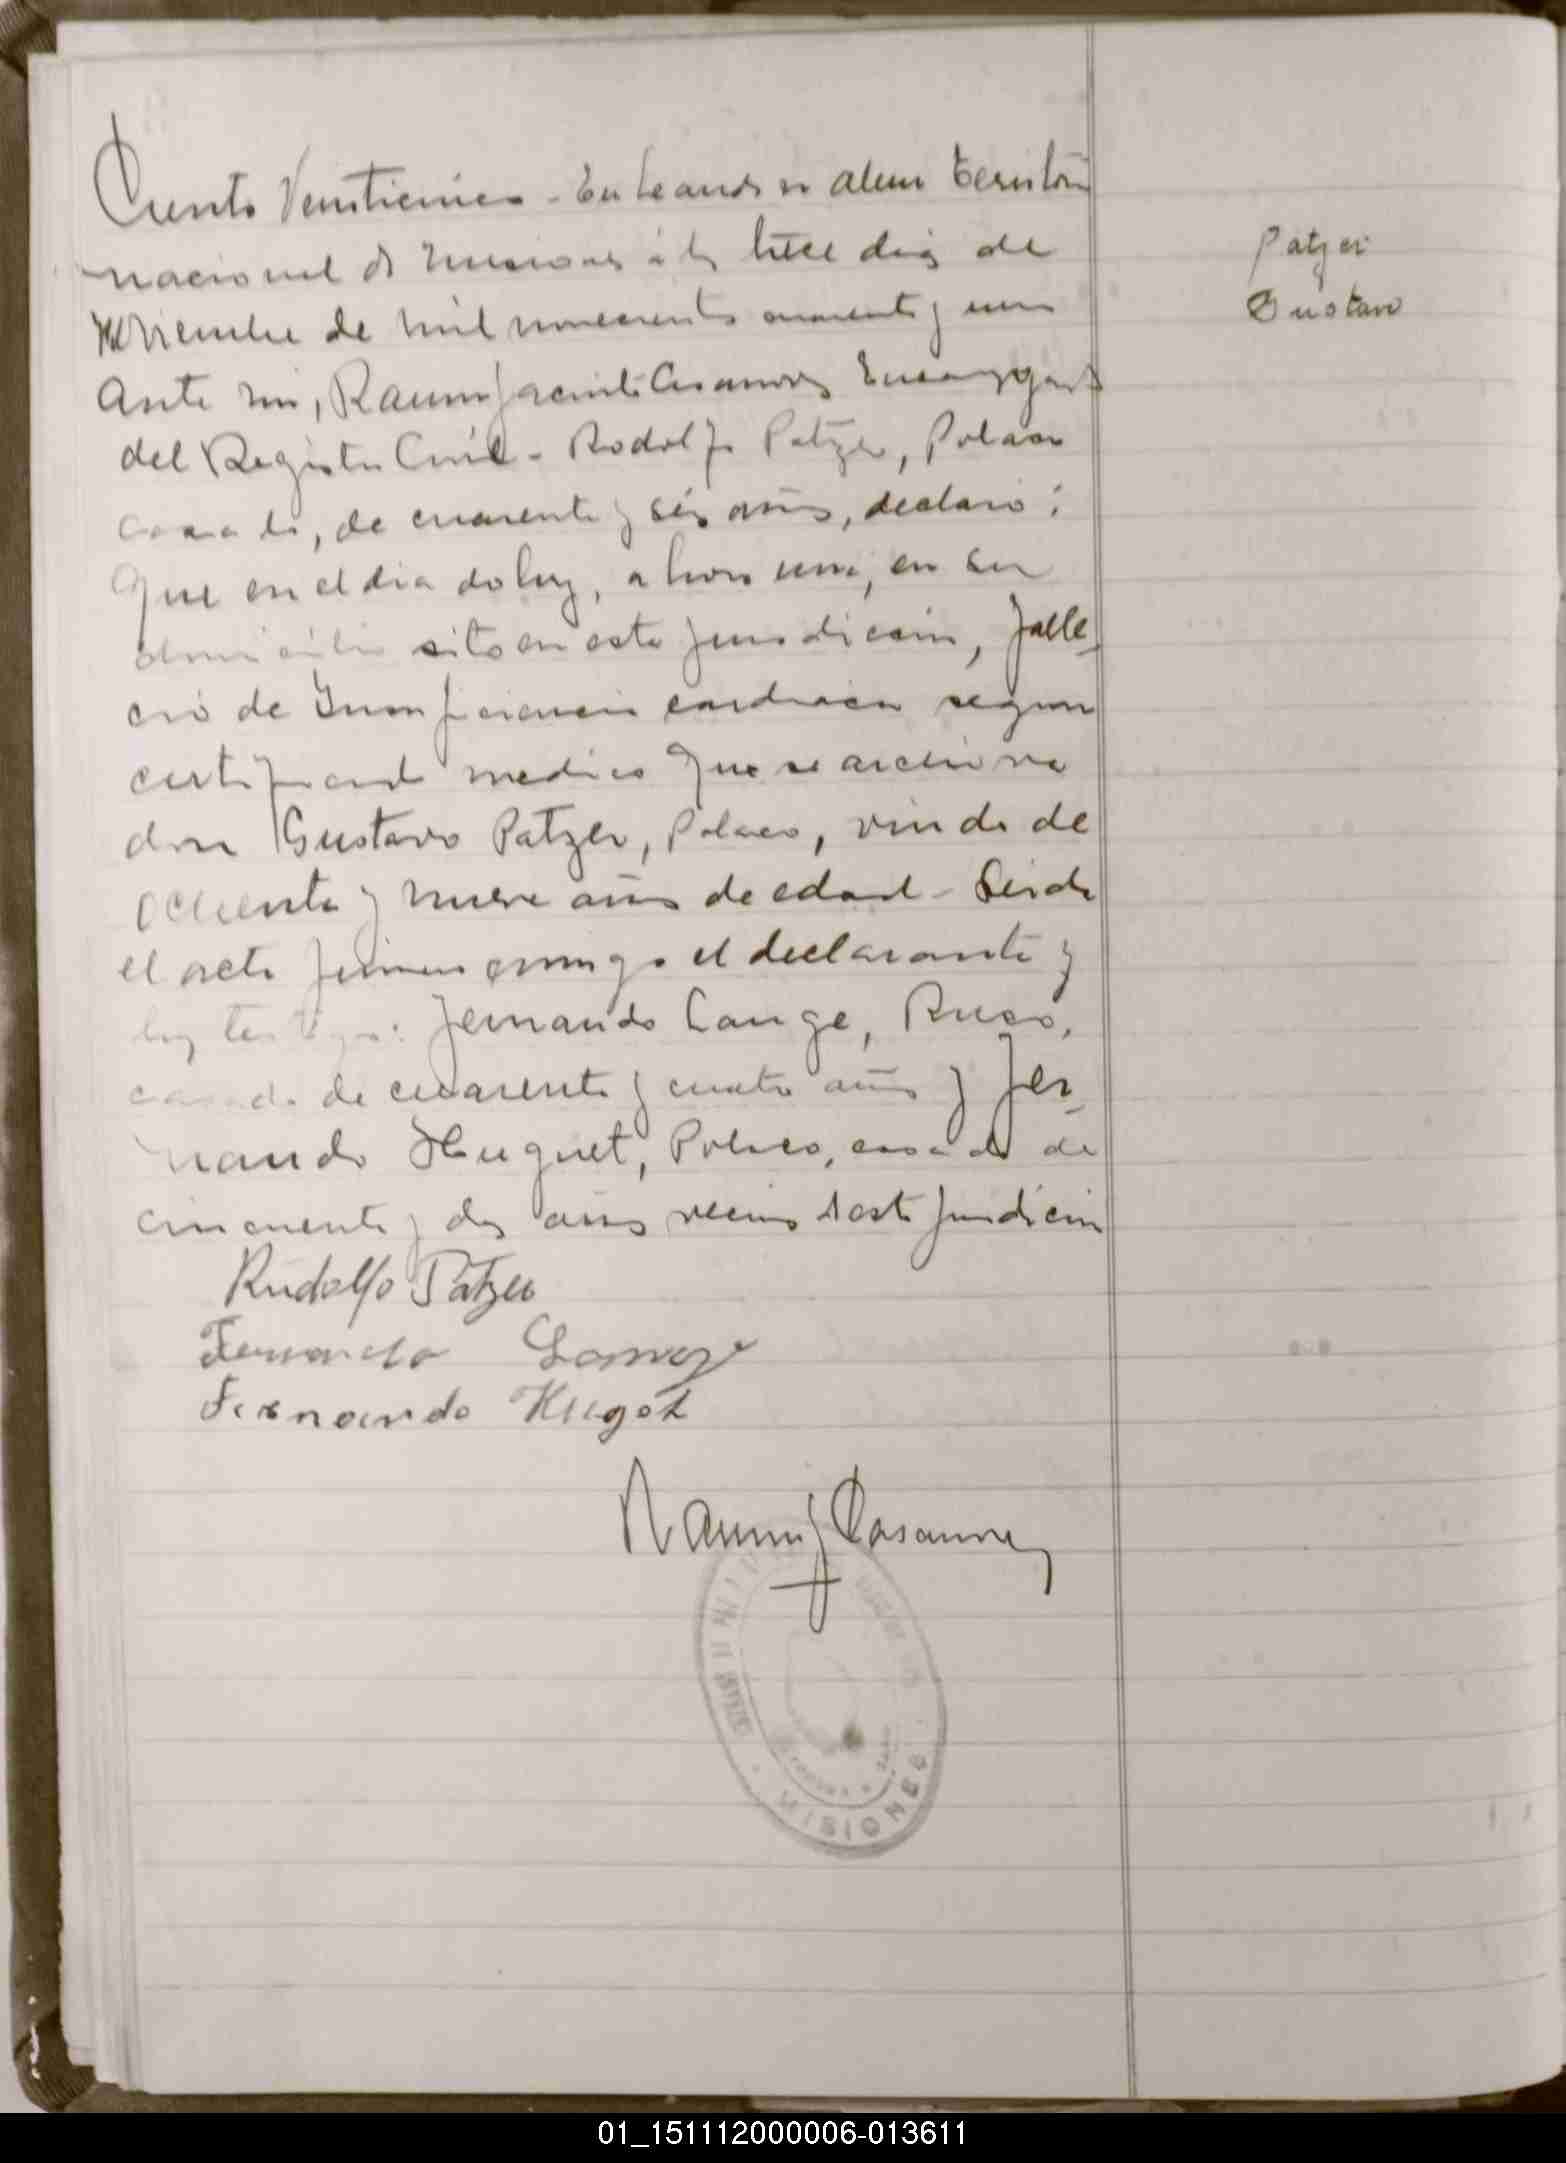 Ciento Veinticinco - En Leandro N Alem Territorio
nacional de Misiones a los trece dias de
Noviembre de mil novecientos cuarenta y uno
Ante mi, Ramon Jacinto Casanova Encargado
del Registro Civil - Rodolfo Patzer, Polaco
casado, de cuarenta y seis años, declaró:
Que en el dia de hoy, a hora una, en su
domicilio sito en esta jurisdiccion, falle-
ció de Insuficiencia cardiaca segun
certificado medico que se archiva
don Gustavo Patzer, Polaco, viudo de
ochenta y nueve años de edad - Leida
el acta firman conmigo el declarante y
los testigos: Fernando Lange, Ruso,
casado de cuarenta y cuatro años y Fer-
nando Huguet, Polaco, casado de
cincuenta y dos años vecinos de esta jurisdiccion
Rudolfo Patzer
Fernando Lange
Fernando Hugot
Ramon J Casanova
MISIONES
Patzer
Gustavo
01_151112000006-013611